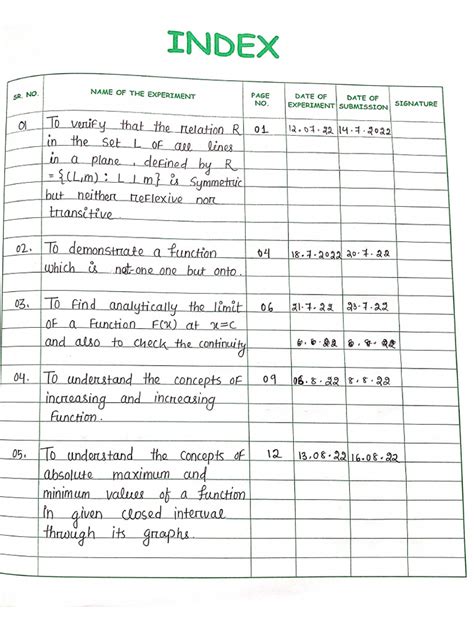 INDEX
SR. NO. NAME OF THE EXPERIMENT PAGE NO. DATE OF EXPERIMENT DATE OF SUBMISSION SIGNATURE
01 To verify that the relation R 01 12.07.22 14.7.2022
in the set L of all lines
in a plane, defined by R
= {(L,m) : L ⊥ m} is symmetric
but neither reflexive nor
transitive
02. To demonstrate a function 04 18.7.2022 20.7.22
which is not one one but onto.
03. To find analytically the limit 06 21.7.22 23.7.22
of a function F(x) at x=c
and also to check the continuity 6.8.22 8.8.22
04. To understand the concepts of 09 06.8.22 8.8.22
increasing and increasing
function.
05. To understand the concepts of 12 13.08.22 16.08.22
absolute maximum and
minimum values of a function
In given closed interval
through its graphs.